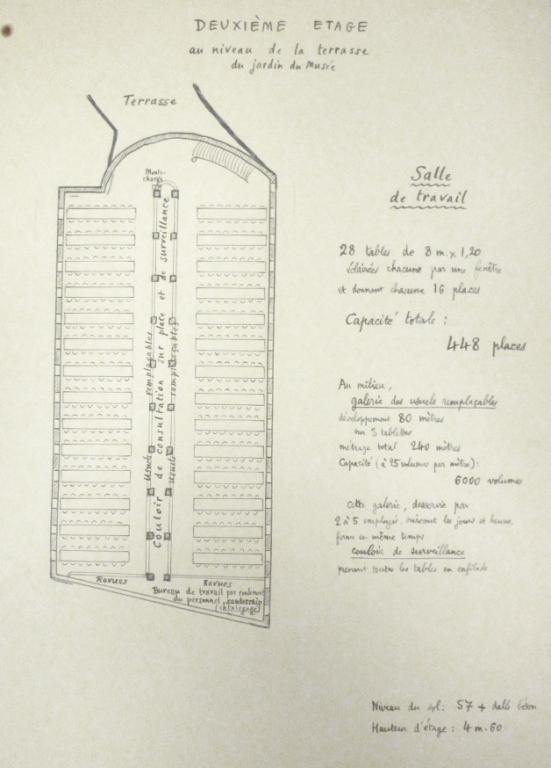 DEUXIÈME ETAGE
au niveau de la terrasse
du jardin du Musée
Terrasse
Monte-
charge
Couloir de consultation sur place et de surveillance
Usuels remplaçables
Usuels remplaçables
Revues
Revues
Bureau de travail par roulement
du personnel souterrain
(catalogage)
Salle
de travail
28 tables de 8 m. x 1,20
éclairées chacune par une fenêtre
et donnant chacune 16 places
Capacité totale :
448 places
Au milieu,
galerie des usuels remplaçables
développement 80 mètres
sur 3 tablettes
métrage total 240 mètres
Capacité (à 25 volumes par mètre) :
6000 volumes
Cette galerie, desservie par
2 à 5 employés, suivant les jours et heures,
forme en même temps
couloir de surveillance
prenant toutes les tables en enfilade
Niveau du sol : 57 + dalle béton
Hauteur d'étage : 4 m. 60